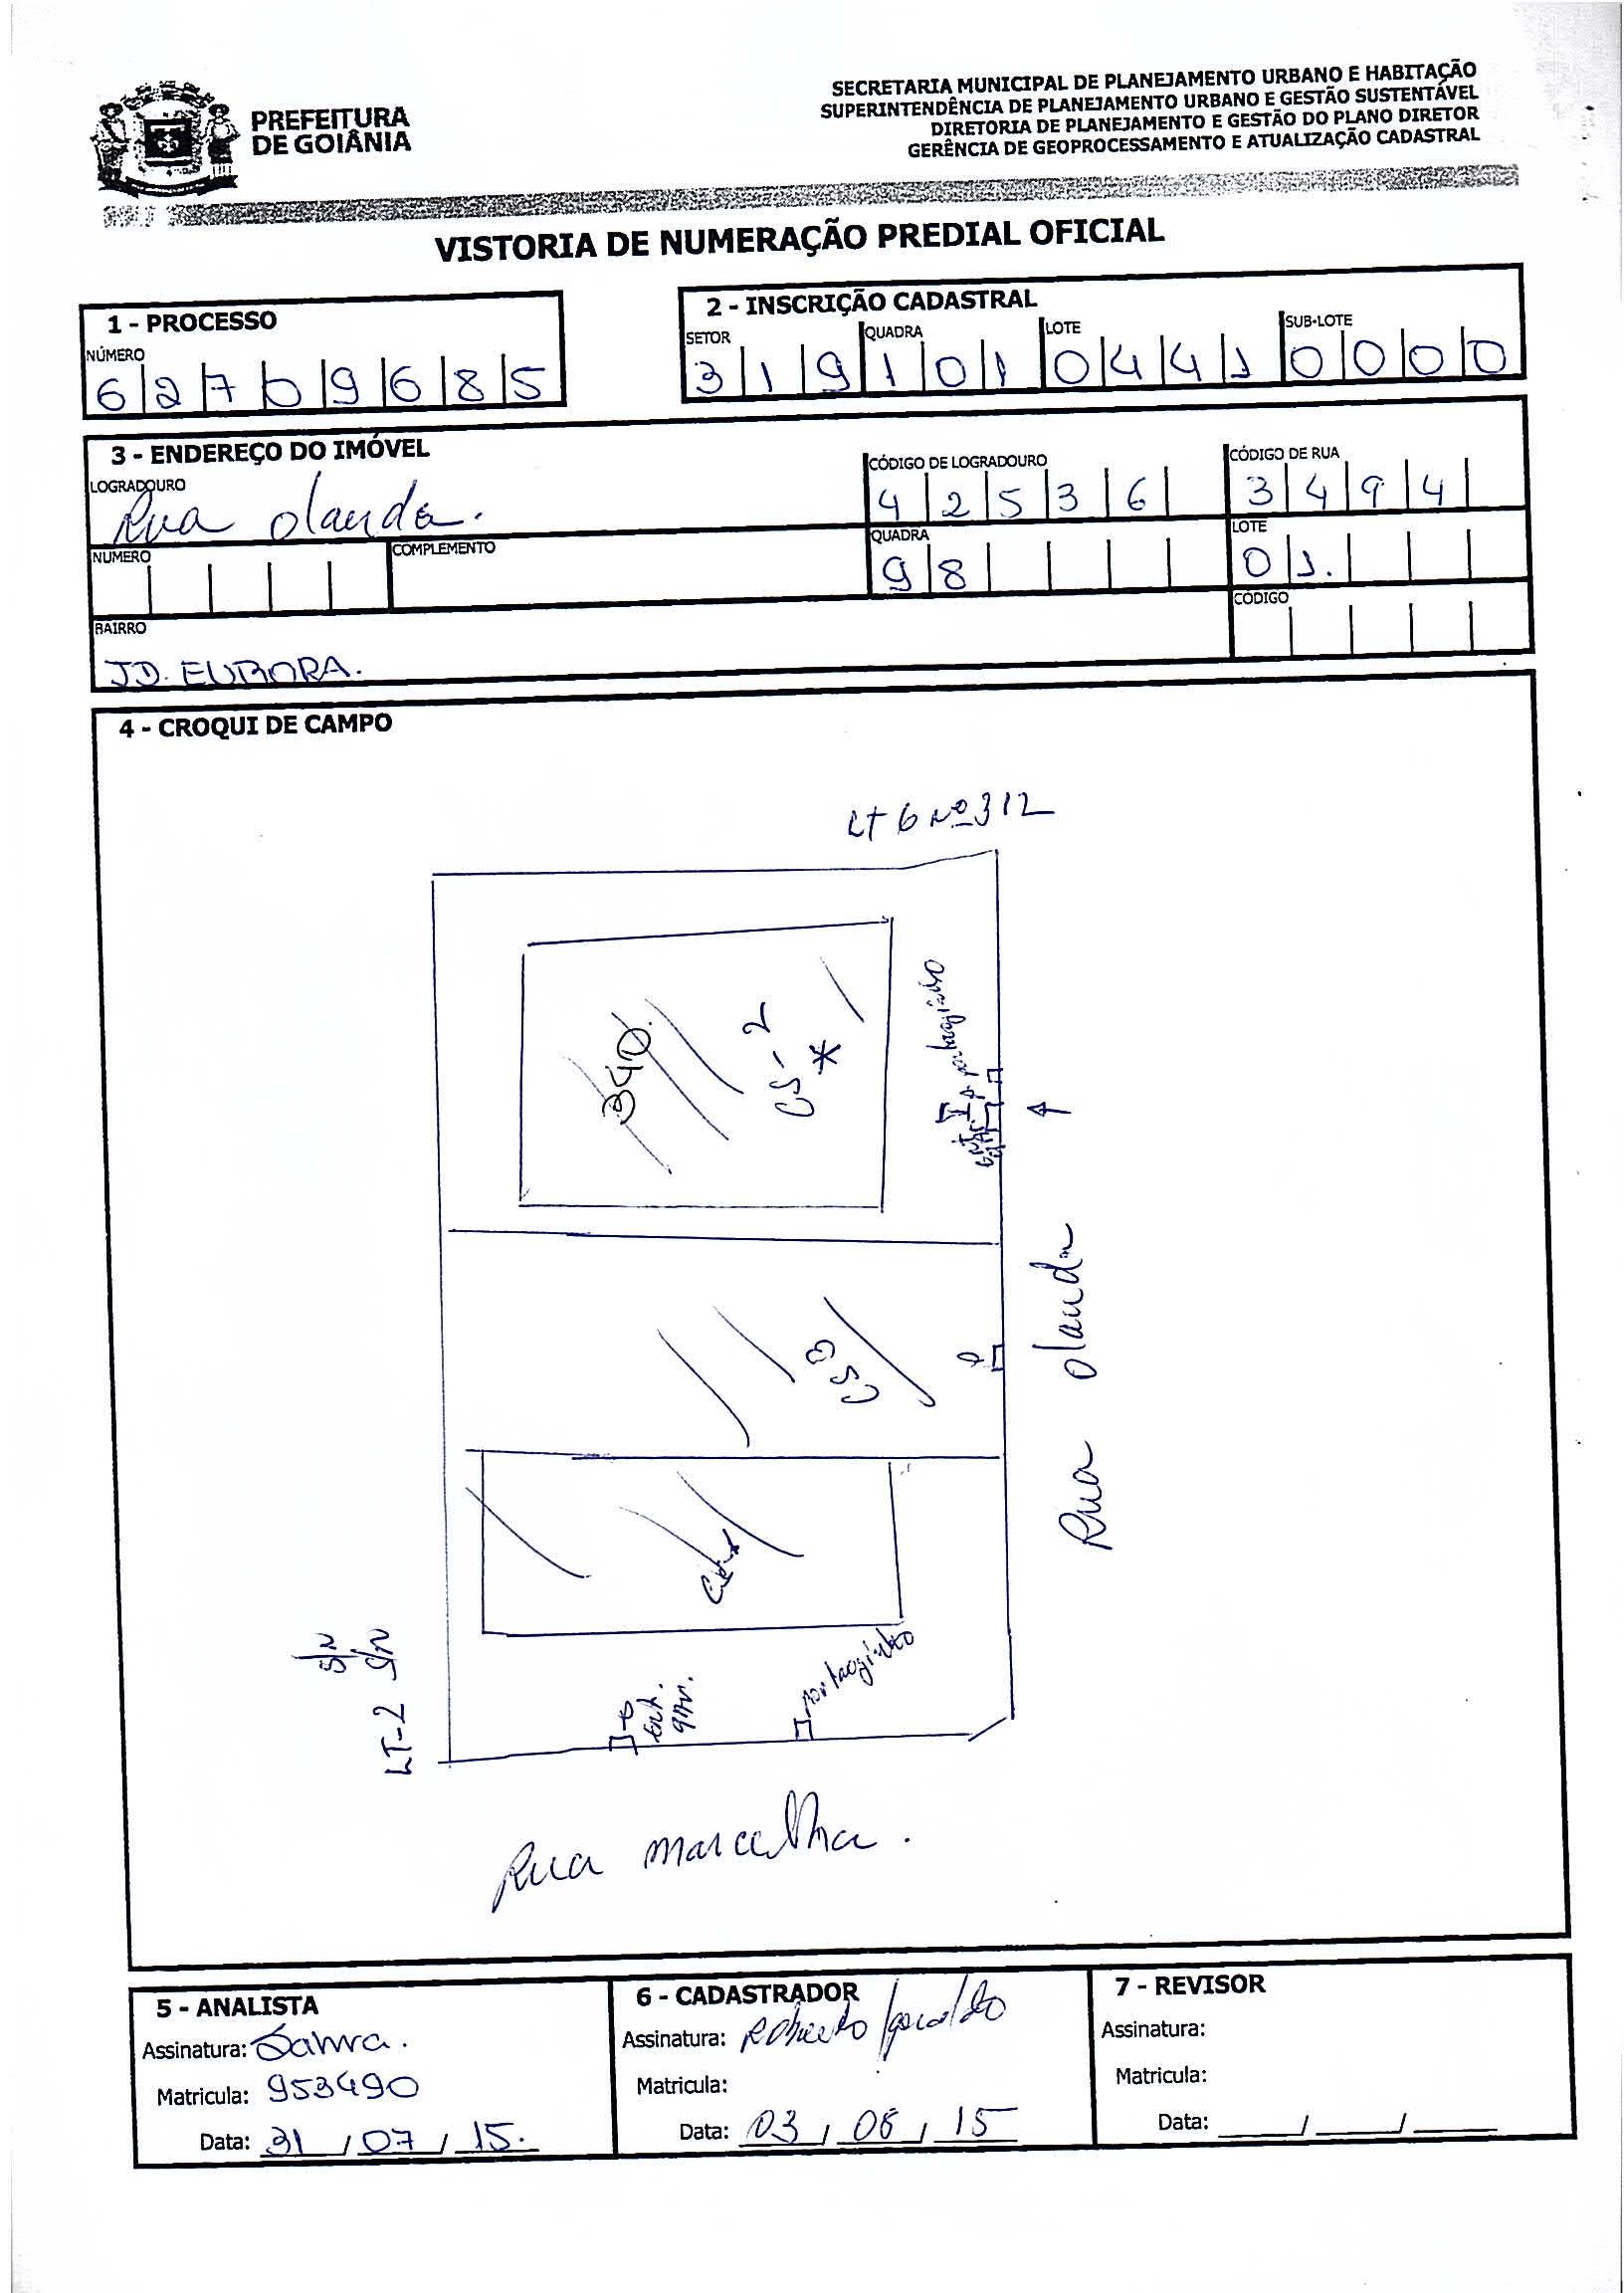 PREFEITURA
DE GOIÂNIA
SECRETARIA MUNICIPAL DE PLANEJAMENTO URBANO E HABITAÇÃO
SUPERINTENDÊNCIA DE PLANEJAMENTO URBANO E GESTÃO SUSTENTÁVEL
DIRETORIA DE PLANEJAMENTO E GESTÃO DO PLANO DIRETOR
GERÊNCIA DE GEOPROCESSAMENTO E ATUALIZAÇÃO CADASTRAL
VISTORIA DE NUMERAÇÃO PREDIAL OFICIAL
1 - PROCESSO
NÚMERO
6 2 7 0 9 6 8 5
2 - INSCRIÇÃO CADASTRAL
SETOR QUADRA LOTE SUB-LOTE
3 1 9 1 0 1 0 4 4 1 0 0 0 0
3 - ENDEREÇO DO IMÓVEL
LOGRADOURO
Rua olanda.
CÓDIGO DE LOGRADOURO
4 2 5 3 6
CÓDIGO DE RUA
3 4 9 4
NUMERO
COMPLEMENTO
QUADRA
98
LOTE
01.
BAIRRO
JD. EUROPA.
CÓDIGO
4 - CROQUI DE CAMPO
LT 6 Nº 312
340.
CS-2
*
portaozinho
Rua olanda
CS
LT-2 S/N
S/N
Ent.
gar.
portaozinho
Rua marcelha.
5 - ANALISTA
Assinatura:
Matricula: 953490
Data: 31 / 07 / 15.
6 - CADASTRADOR
Assinatura: Roberto
Matricula:
Data: 03 / 08 / 15
7 - REVISOR
Assinatura:
Matricula:
Data: ___/___/___